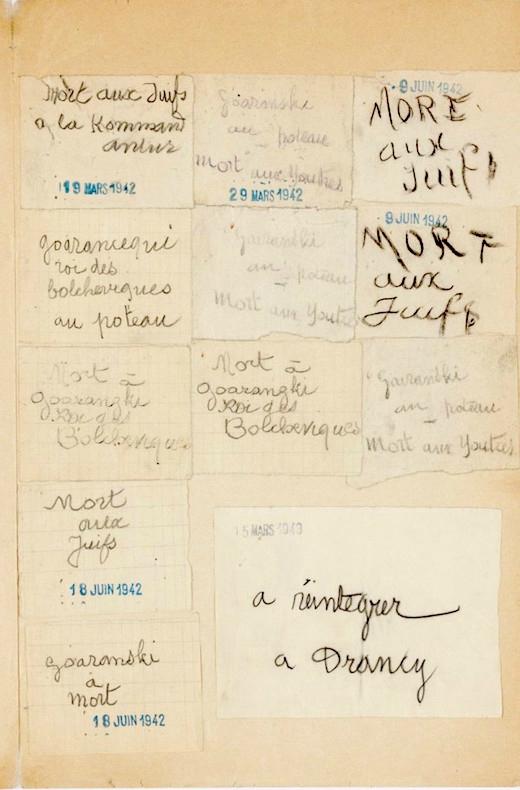 Mort aux Juifs
a la Kommand
antur
19 MARS 1942
Goaranski
au poteau
Mort aux Youtres
29 MARS 1942
9 JUIN 1942
MORT
aux
Juifs
goaranicqui
roi des
bolcheviques
au poteau
Goaranski
au poteau
Mort aux Youtres
9 JUIN 1942
MORT
aux
Juifs
Mort à
goarangki
Roi des
Bolcheviques
Mort à
goarangki
Roi des
Bolcheviques
Goaranski
au poteau
Mort aux Youtres
Mort
aux
Juifs
18 JUIN 1942
15 MARS 1943
a réintegrer
a Drancy
goaranski
à
mort
18 JUIN 1942